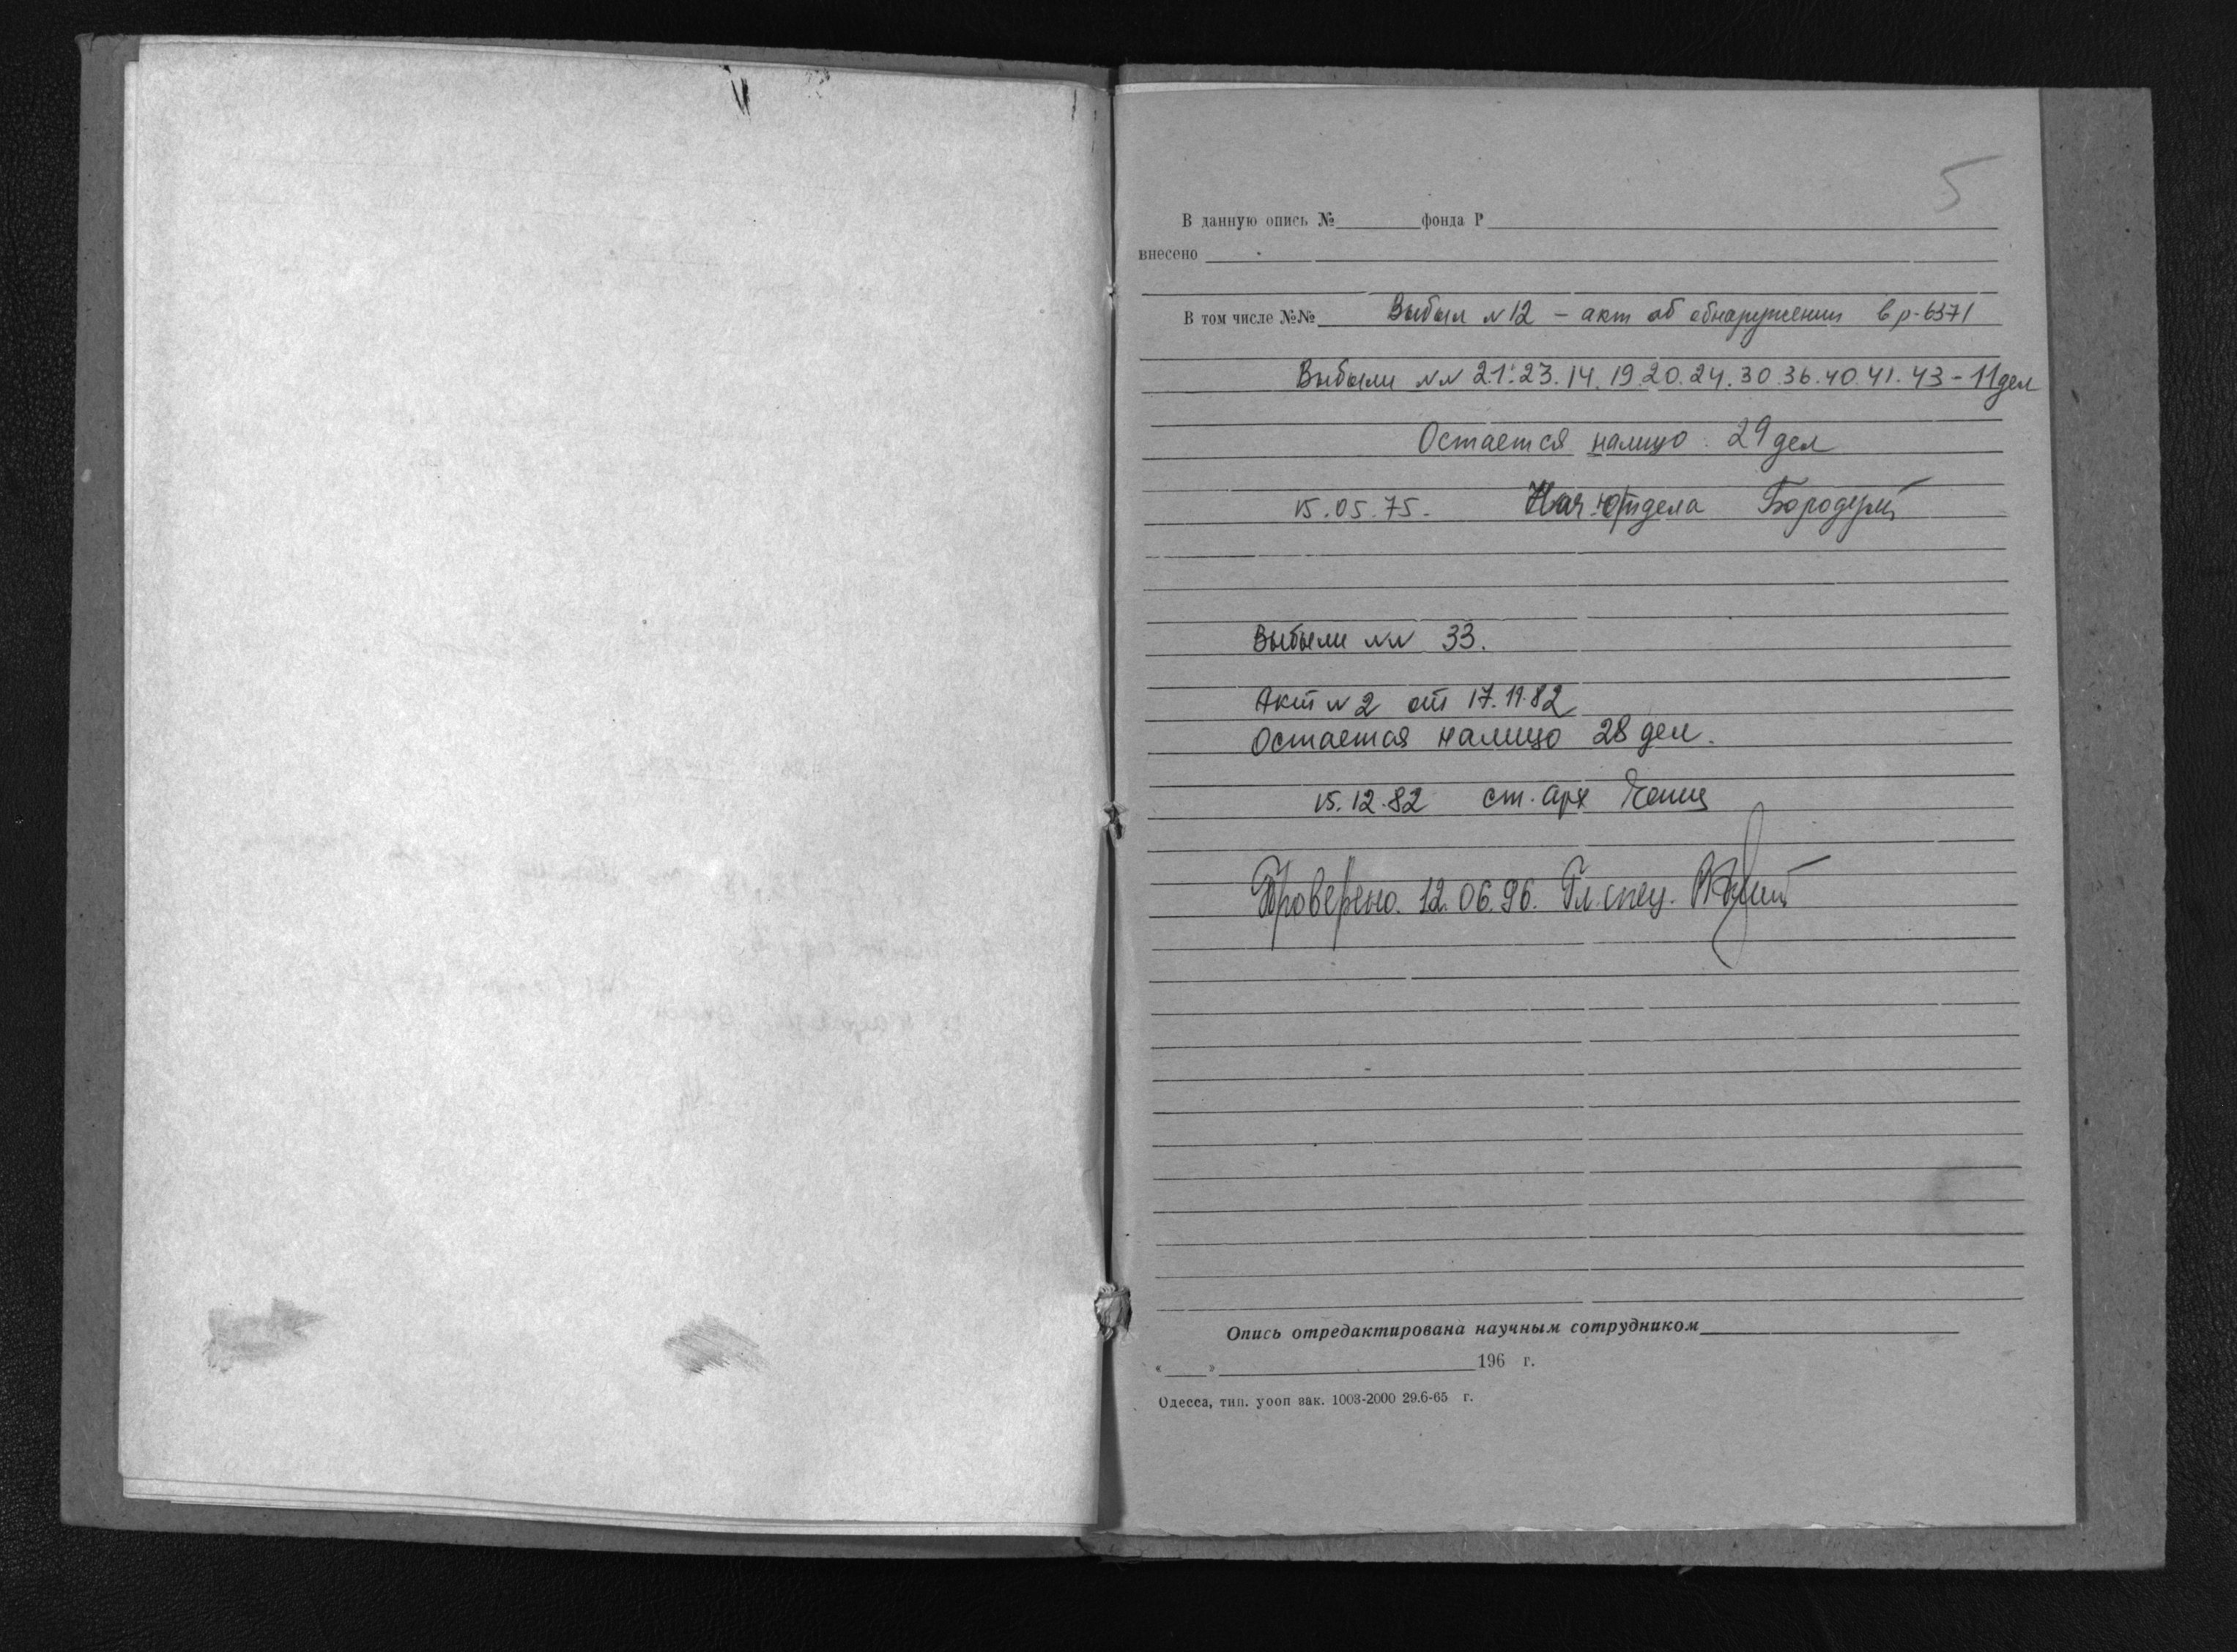 5
В данную опись № фонда Р
внесено
В том числе №№ Выбыл № 12 – акт об обнаружении в р-6371
Выбыли №№ 21. 23. 14. 19. 20. 24. 30. 36. 40. 41. 43 – 11 дел
Остается налицо 29 дел
15.05.75. Нач. отдела
Выбыли №№ 33.
Акт № 2 от 17.11.82
Остается налицо 28 дел.
15.12.82 ст. арх
Проверено. 12.06.96. Гл. спец.
Опись отредактирована научным сотрудником
« » 196 г.
Одесса, тип. уооп зак. 1003-2000 29.6-65 г.